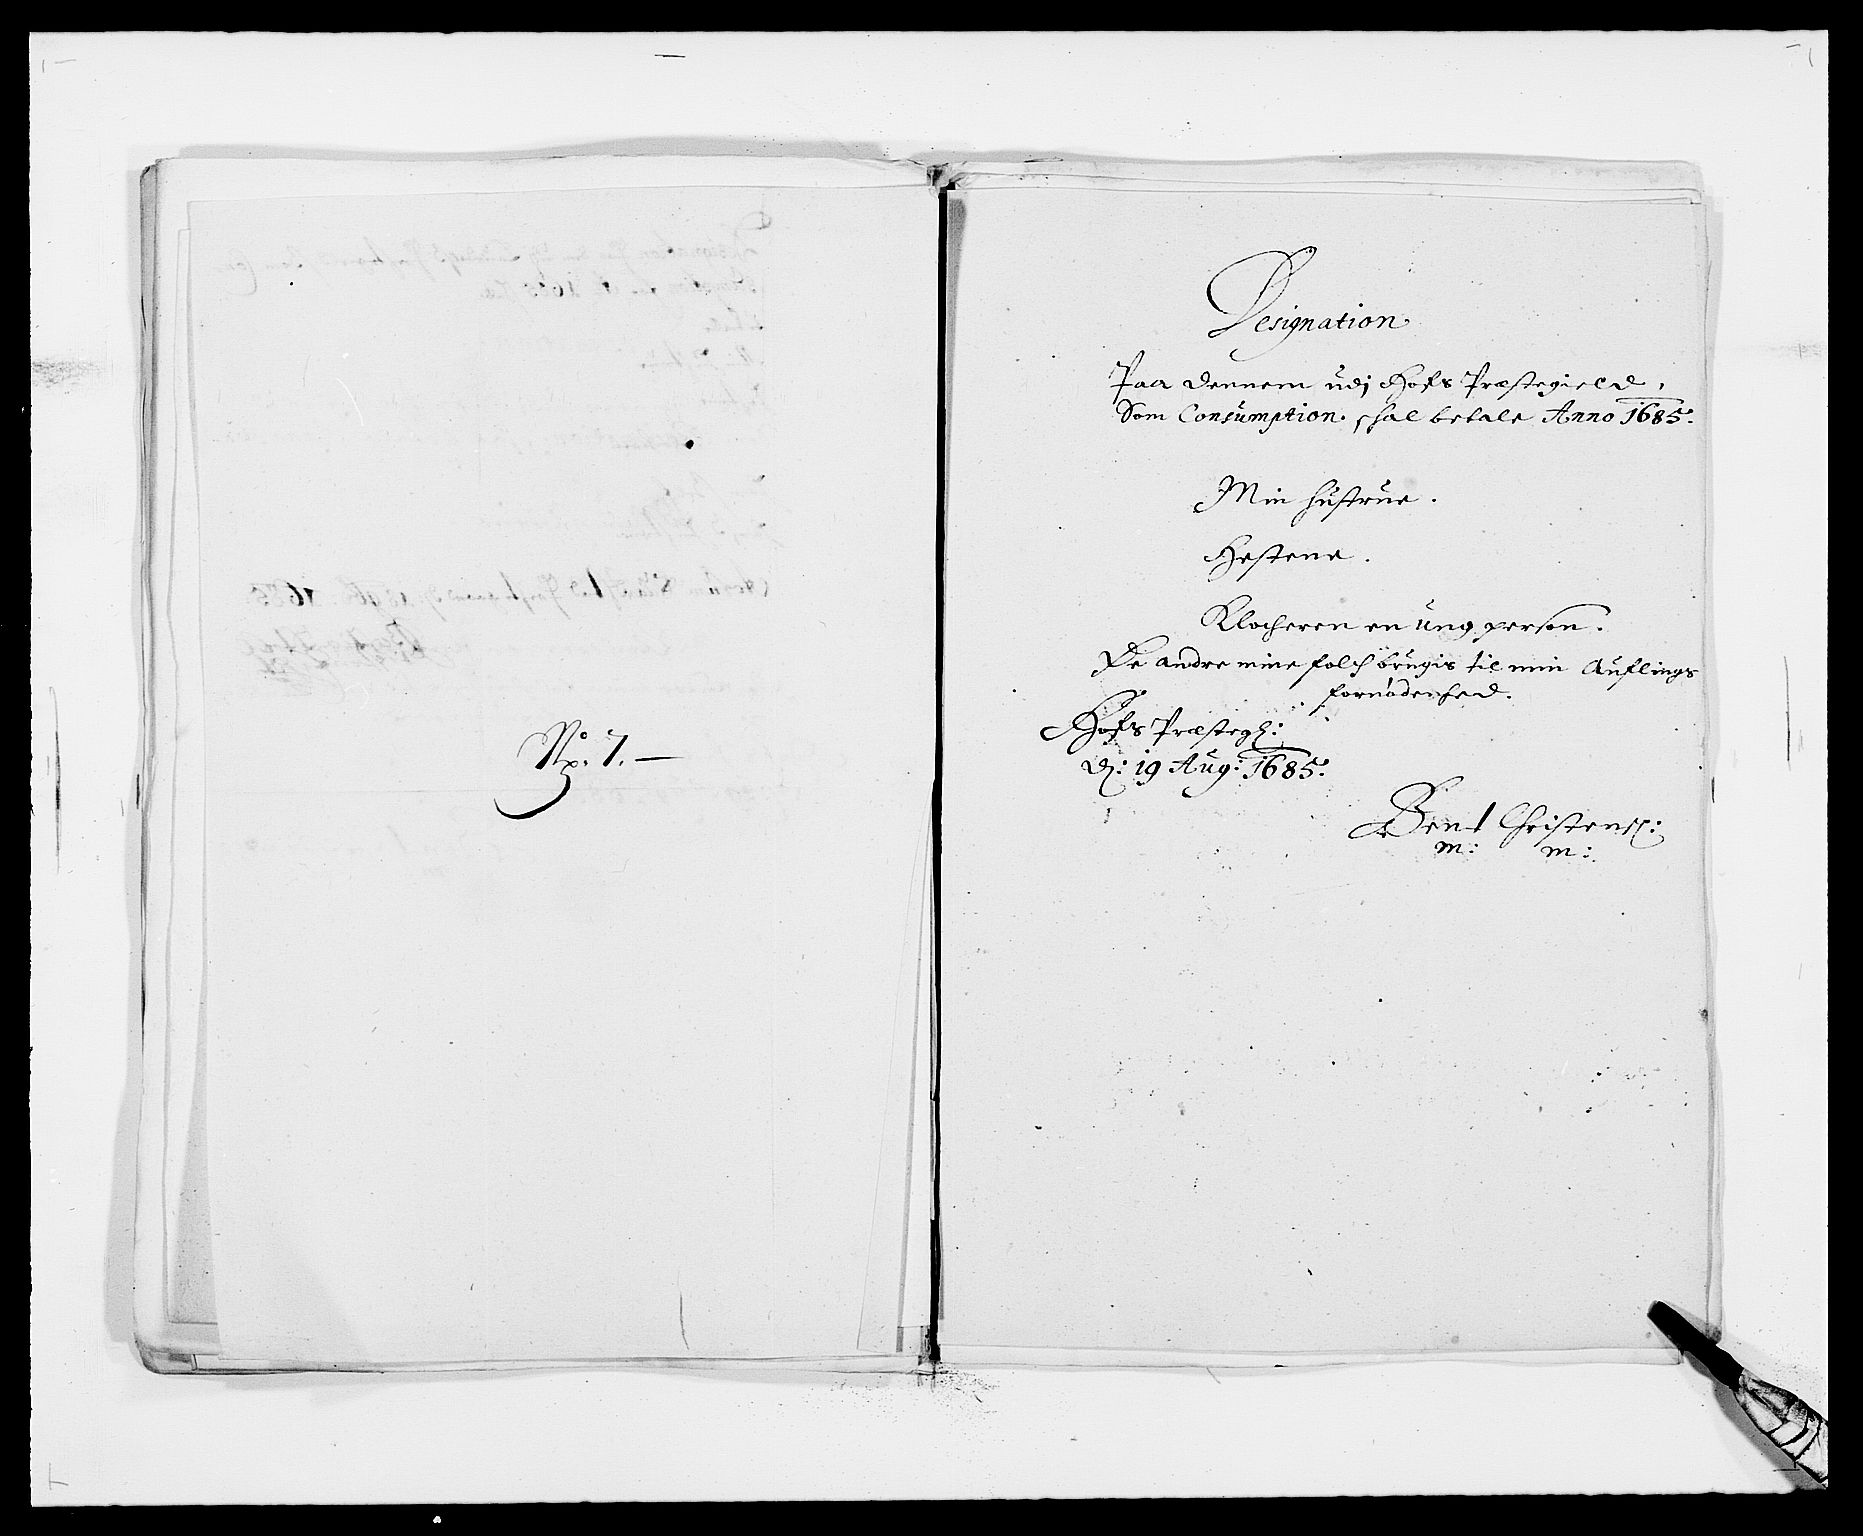 No. 7. —
Designation
Paa dennem udj Hofs Præstegield,
Som Consumption schal betale Anno 1685.
Min hustrue.
Hestene.
Klocheren en ung person.
De andre mine folch brugis til min Auflings
fornødenhed.
Hofs Præsteg:
d: 19 Aug: 1685.
Bent Christenss:
m: m: